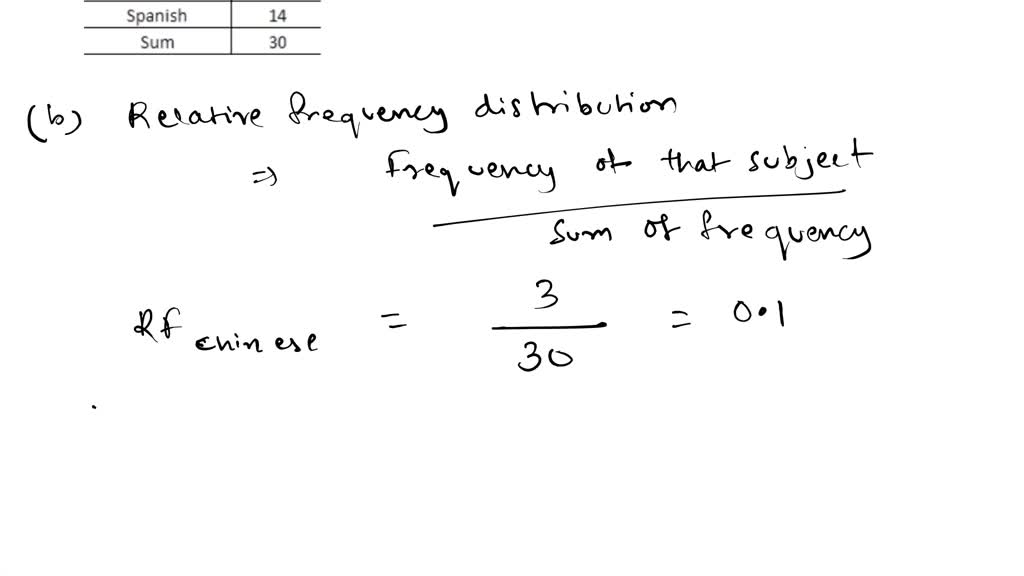 Spanish 14
Sum 30
(b) Relative frequency distribution
⇒ Frequency of that subject
Sum of frequency
Rf chinese = 3/30 = 0.1